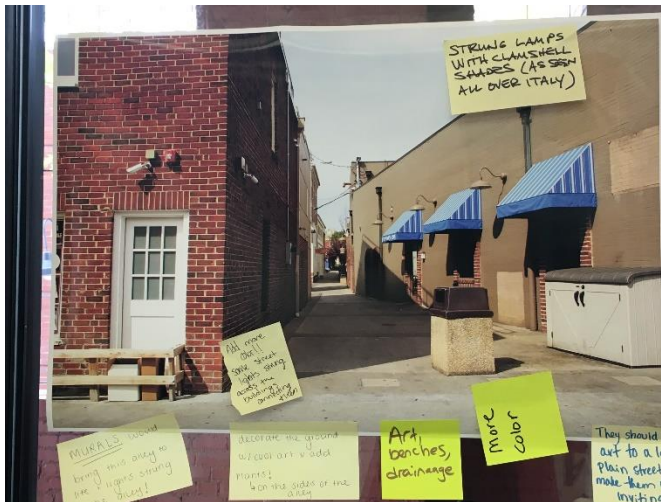 STRUNG LAMPS
WITH CLAMSHELL
SHADES (AS SEEN
ALL OVER ITALY)
Add more
color!!
Some street
lights strung
across the
buildings
connecting
MURALS would
bring this alley to
life! Lights strung
alley!
decorate the ground
w/cool art & add
plants!
on the sides of the
alley
Art,
benches,
drainange
more
color
They should
art to a
Plain Street
make them
inviting